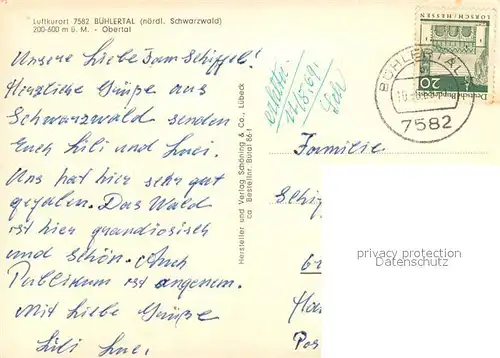 Luftkurort 7582 BÜHLERTAL (nördl. Schwarzwald)
200-600 m ü. M. - Obertal
Unsere Liebe Fam. Schiffel!
Herzliche Grüße aus
Schwarzwald senden
Euch Lili und
Uns hat hier sehr gut
gefalen. Das Wald
ist hier grandiosisch
und schön. Auch
Publikum ist angenem.
Mit Liebe Grüße
Lili
Hersteller und Verlag Schöning & Co., Lübeck
ca Bestellnr. Bürgl 86-1
Familie
Schi
LORSCH/HESSEN
Deutsche Bundespost
20
BÜHLERTAL
7582
privacy protection
Datenschutz